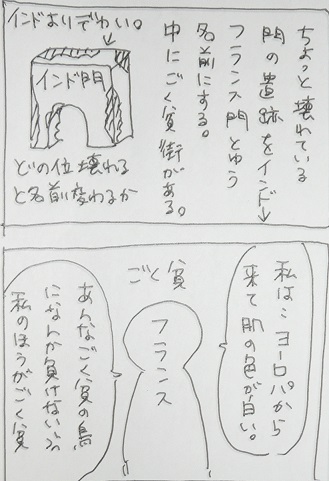 ちょっと壊れている
門の遺跡をインド→
フランス門とゆう
名前にする。
中にごく貧街がある。
インドよりでわい。
インド門
どの位壊れる
と名前変わるか
私は…ヨーロパから
来て肌の色が白い。
ごく貧
フランス
あんなごく貧の鳥
になんか負けないぶ
私のほうがごく貧